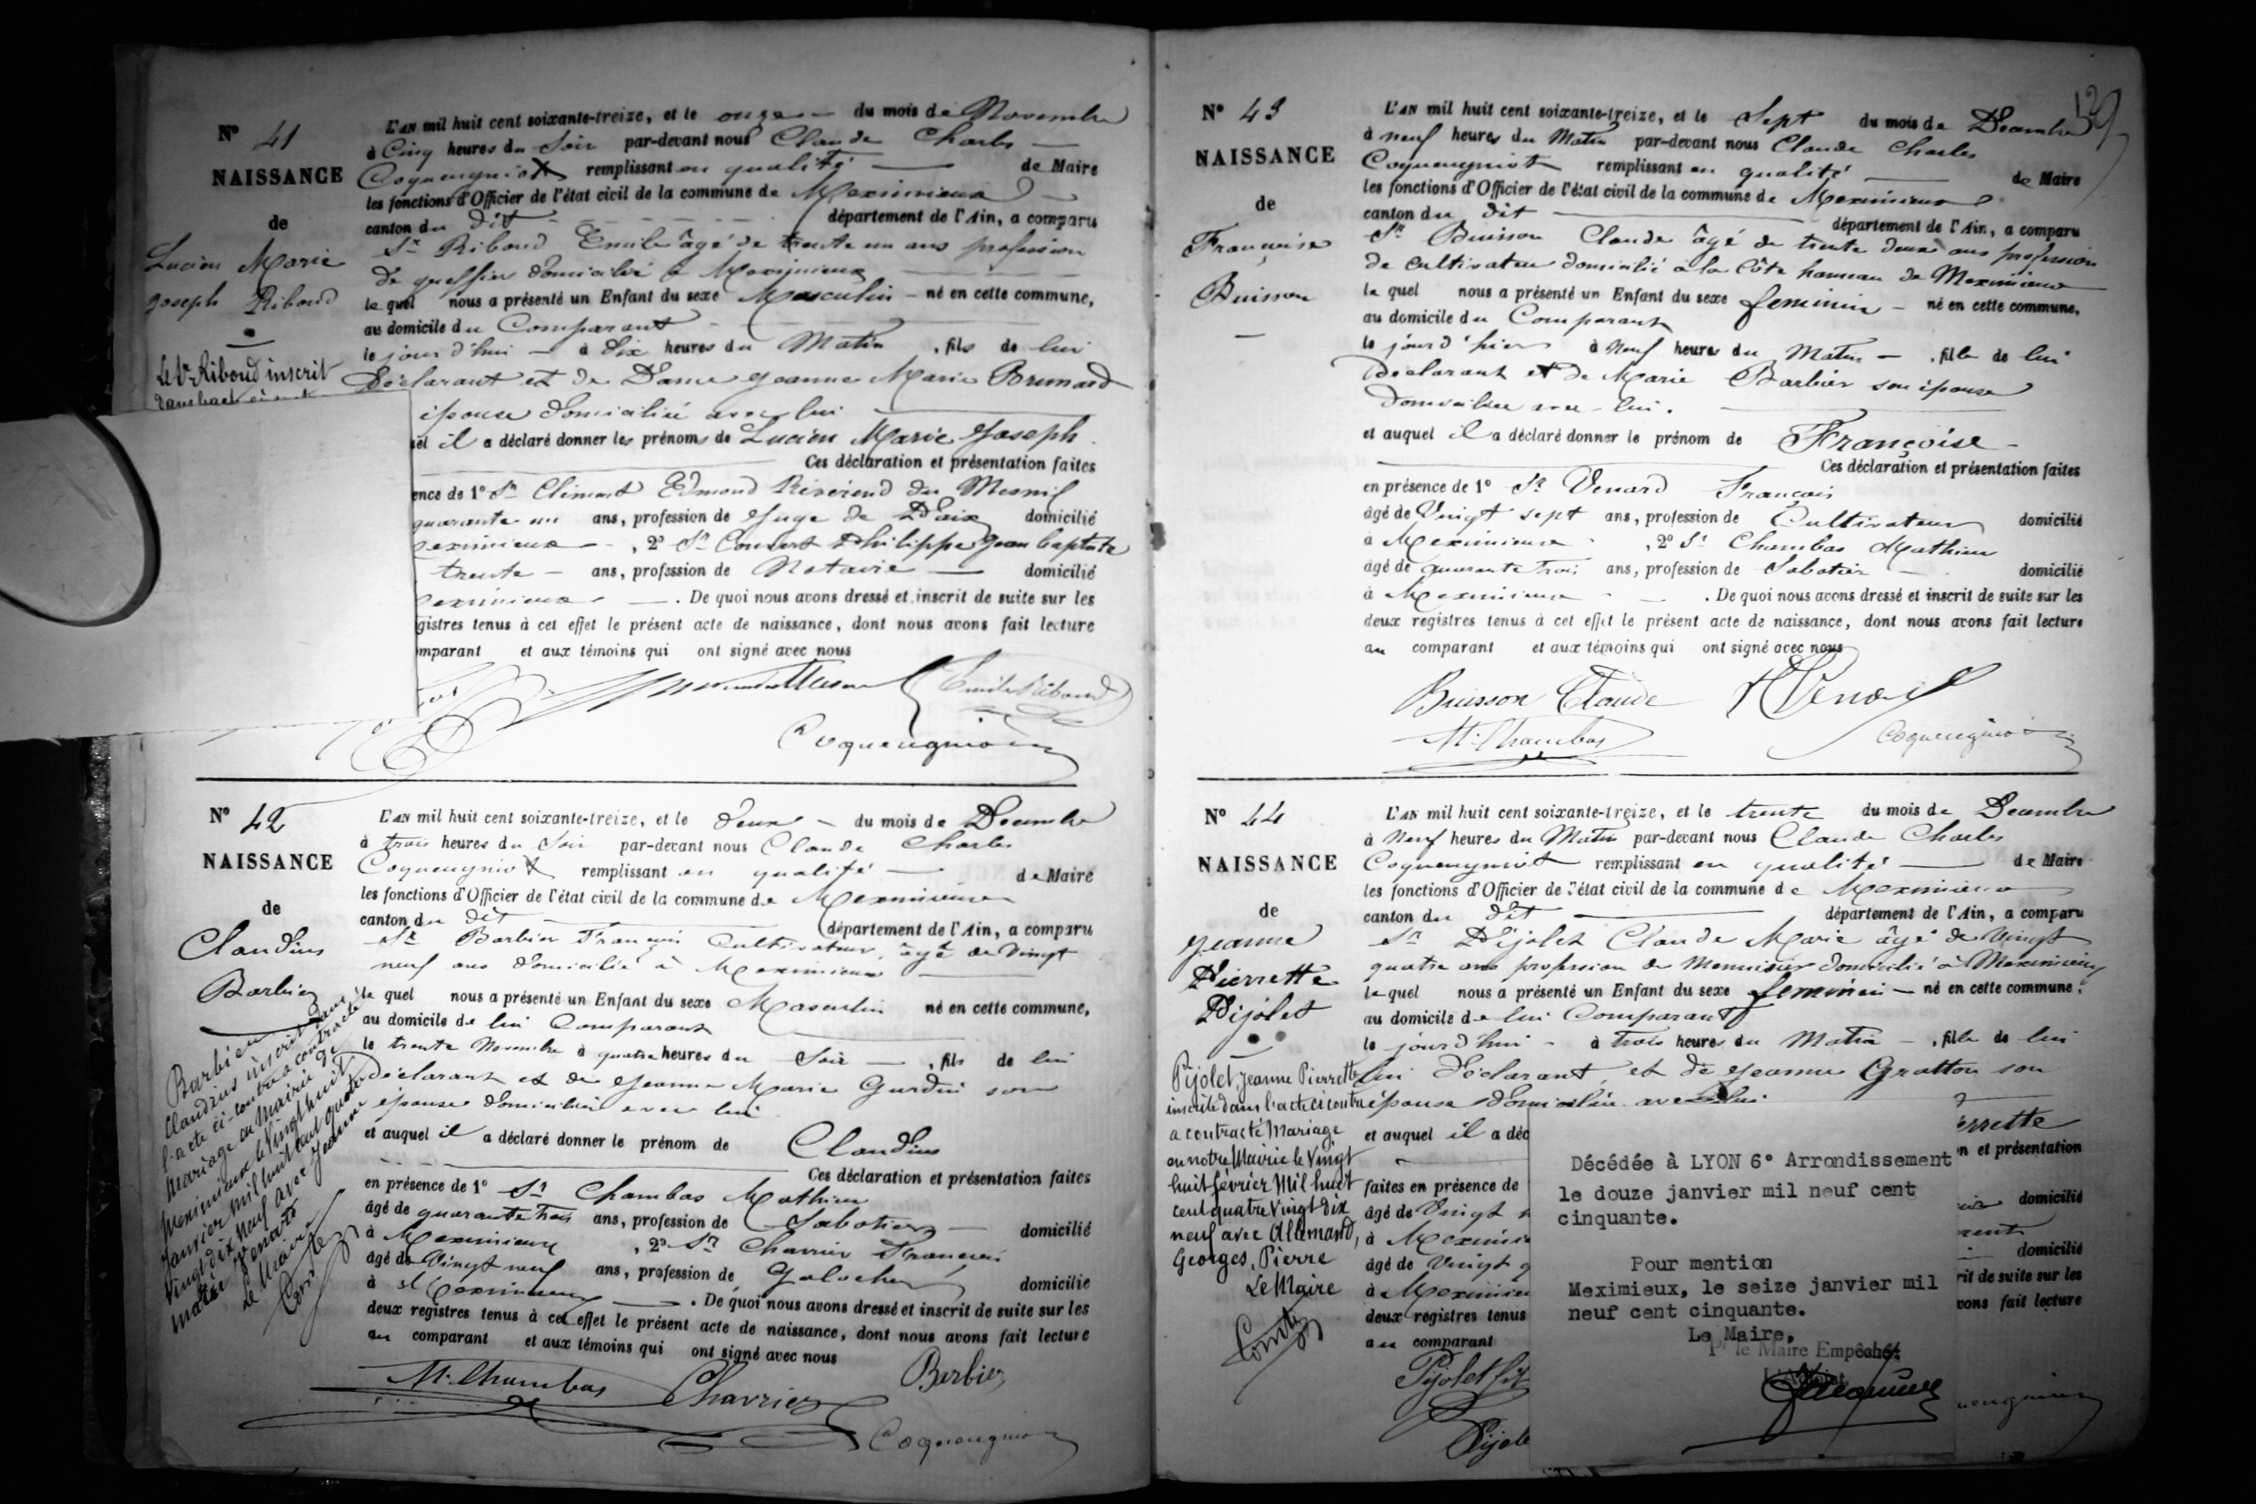 Nº 41
NAISSANCE
de
Lucien Marie
Joseph Riboud
Le Sr Riboud inscrit
L'AN mil huit cent soixante-treize, et le onze du mois de Novembre
à Cinq heures du Soir par-devant nous Claude Charles
Coqueugniot remplissant en qualité de Maire
les fonctions d'Officier de l'état civil de la commune de Meximieux
canton du dit département de l'Ain, a comparu
Sr Riboud Emile âgé de trente un ans profession
de greffier domicilié à Meximieux
le quel nous a présenté un Enfant du sexe Masculin né en cette commune,
au domicile du Comparant
le jour d'hui à dix heures du Matin, fils de lui
Déclarant et de Dame Jeanne Marie Brunard
épouse domiciliée avec lui
il a déclaré donner les prénoms de Lucien Marie Joseph.
Ces déclaration et présentation faites
ence de 1º Sr Clément Edmond Révérend du Mesnil
quarante un ans, profession de Juge de Paix domicilié
eximieux, 2º Sr Convert Philippe Jean baptiste
trente ans, profession de Notaire domicilié
eximieux. De quoi nous avons dressé et inscrit de suite sur les
gistres tenus à cet effet le présent acte de naissance, dont nous avons fait lecture
mparant et aux témoins qui ont signé avec nous
Emile Riboud
Coqueugniot
Nº 42
NAISSANCE
de
Claudius
Barbier
Barbier
Claudius inscrit dans
l'acte ci-contre a contracté
mariage en mairie de
Meximieux le Vingt huit
Janvier mil huit cent quatre
Vingt dix neuf avec Jeanne
Marie Venard
Le Maire
L'AN mil huit cent soixante-treize, et le deux du mois de Décembre
à trois heures du Soir par-devant nous Claude Charles
Coqueugniot remplissant en qualité de Maire
les fonctions d'Officier de l'état civil de la commune de Meximieux
canton du dit département de l'Ain, a comparu
Sr Barbier François Cultivateur, âgé de Vingt
neuf ans domicilié à Meximieux
le quel nous a présenté un Enfant du sexe Masculin né en cette commune,
au domicile de lui Comparant
le trente Novembre à quatre heures du Soir, fils de lui
déclarant et de Jeanne Marie Gurdin son
épouse domiciliée avec lui
et auquel il a déclaré donner le prénom de Claudius
Ces déclaration et présentation faites
en présence de 1º Sr Chambas Mathieu
âgé de quarante trois ans, profession de Sabotier domicilié
à Meximieux, 2º Sr Charrier François
âgé de Vingt neuf ans, profession de Galocher domicilié
à Meximieux. De quoi nous avons dressé et inscrit de suite sur les
deux registres tenus à cet effet le présent acte de naissance, dont nous avons fait lecture
au comparant et aux témoins qui ont signé avec nous
M. Chambas Charrier Barbier
Coqueugniot
129
Nº 43
NAISSANCE
de
Françoise
Buisson
L'AN mil huit cent soixante-treize, et le Sept du mois de Décembre
à neuf heures du Matin par-devant nous Claude Charles
Coqueugniot remplissant en qualité de Maire
les fonctions d'Officier de l'état civil de la commune de Meximieux
canton du dit département de l'Ain, a comparu
Sr Buisson Claude âgé de trente deux ans profession
de cultivateur domicilié à la Côte hameau de Meximieux
le quel nous a présenté un Enfant du sexe féminin né en cette commune,
au domicile du Comparant
le jour d'hier à Neuf heures du Matin, fille de lui
Déclarant et de Marie Barbier son épouse
domiciliée avec lui.
et auquel il a déclaré donner le prénom de Françoise
Ces déclaration et présentation faites
en présence de 1º Sr Venard François
âgé de Vingt sept ans, profession de Cultivateur domicilié
à Meximieux, 2º Sr Chambas Mathieu
âgé de quarante trois ans, profession de Sabotier domicilié
à Meximieux. De quoi nous avons dressé et inscrit de suite sur les
deux registres tenus à cet effet le présent acte de naissance, dont nous avons fait lecture
au comparant et aux témoins qui ont signé avec nous
Buisson Claude Venard
M. Chambas Coqueugniot
Nº 44
NAISSANCE
de
Jeanne
Pierrette
Pijolet
Pijolet Jeanne Pierrette
inscrite dans l'acte ci contre
a contracté Mariage
en notre Mairie le Vingt
huit février Mil huit
cent quatre Vingt dix
neuf avec Allemand,
Georges, Pierre
Le Maire
L'AN mil huit cent soixante-treize, et le trente du mois de Décembre
à Neuf heures du Matin par-devant nous Claude Charles
Coqueugniot remplissant en qualité de Maire
les fonctions d'Officier de l'état civil de la commune de Meximieux
canton du dit département de l'Ain, a comparu
Sr Pijolet Claude Marie âgé de Vingt
quatre ans profession de Menuisier domicilié à Meximieux
le quel nous a présenté un Enfant du sexe féminin né en cette commune,
au domicile de lui Comparant
le jour d'hui à trois heures du Matin, fille de lui
lui déclarant et de Jeanne Gratton son
épouse domiciliée avec lui
et auquel il a déc errette
n et présentation
faites en présence de
âgé de Vingt domicilié
à Meximi
âgé de Vingt domicilié
à Meximieu rit de suite sur les
deux registres tenus vons fait lecture
au comparant
Pijolet
Décédée à LYON 6º Arrondissement
le douze janvier mil neuf cent
cinquante.
Pour mention
Meximieux, le seize janvier mil
neuf cent cinquante.
Le Maire,
Pr le Maire Empêché